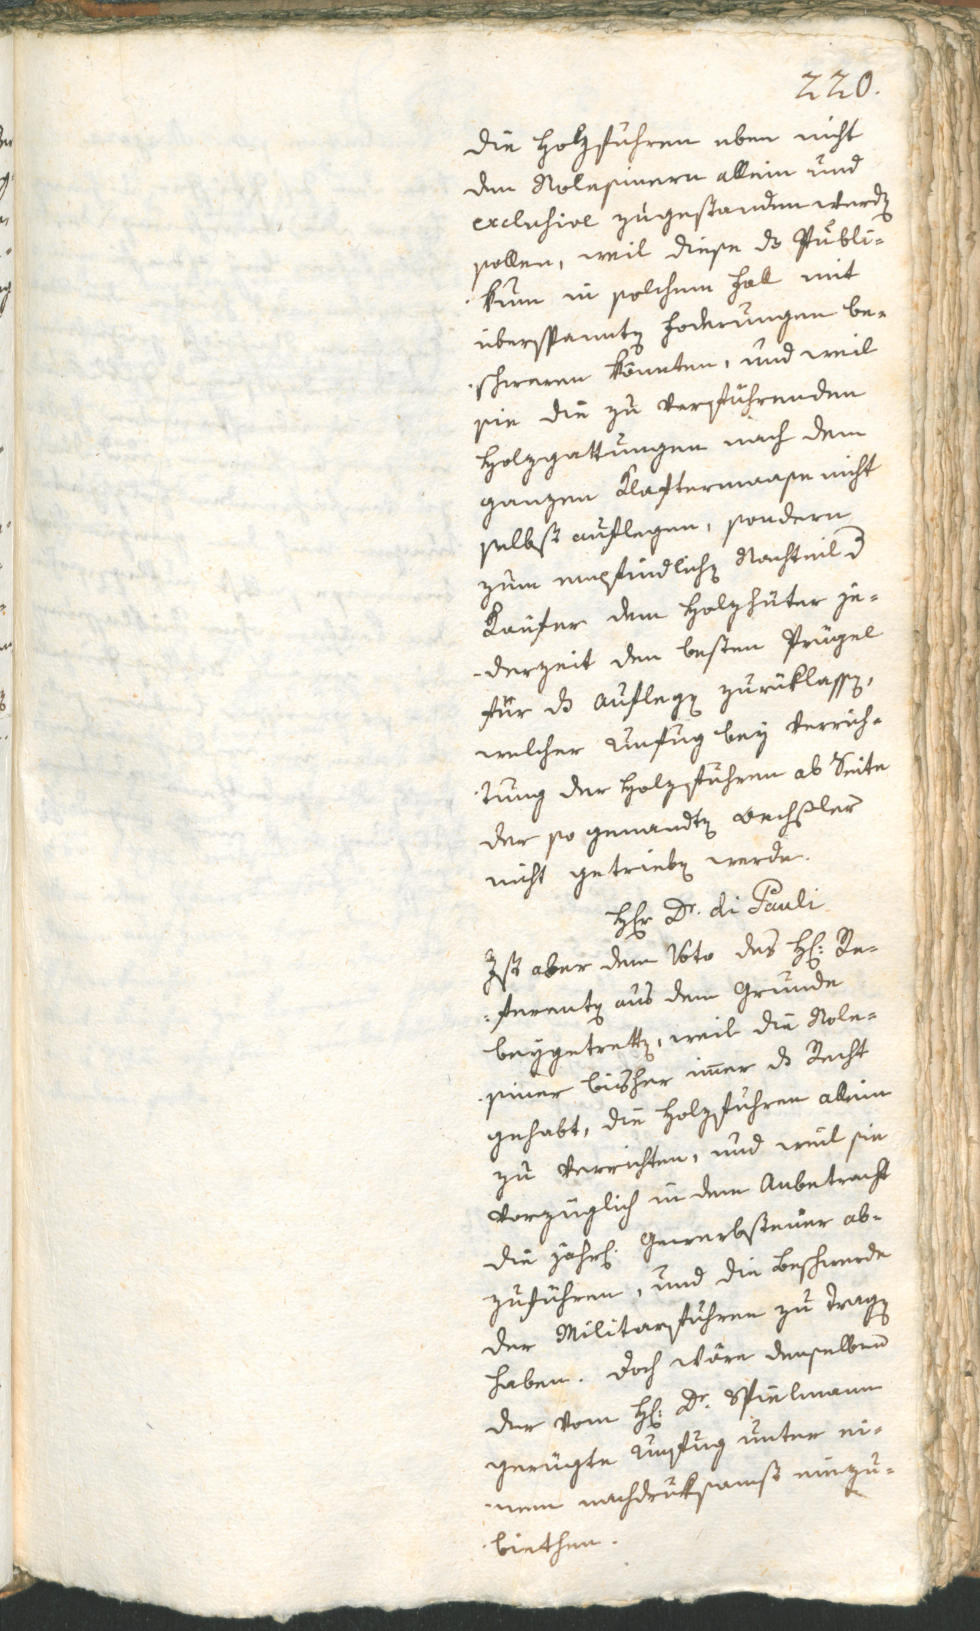 220.
die Holzfuhren eben nicht
den Rolesinern allein und
exclusive zugestanden werden
sollen, weil diese ds Publi-
kum in solchem Fall mit
überspannten Foderungen be-
schweren könnten, und weil
sie die zu verführenden
Holzgattungen nach dem
ganzen Klaftermaase nicht
selbst auflegen, sondern
zum empfindlichen Nachteil d
Kaüfer dem Holzhüter je-
derzeit den besten Prügel
für ds Auflegen zurüklassen,
welcher Unfug bey Verrich-
tung der Holzfuhren ab Seite
der so genandten Wechsler
nicht getrieben werde.
Hr Dr. di Pauli
Ist aber dem Voto des H: Re-
ferenten aus dem Grunde
beygetretten, weil die Role-
siner bisher immer ds Recht
gehabt, die Holzfuhren allein
zu verrichten, und weil sie
vorzüglich in dem Anbetracht
die jährl. Gewerbsteüer ab-
zuführen, und die Beschwerde
der Militarfuhren zu tragen
haben. Doch wäre denselben
der vom H: Dr. Spielmann
gerügte Unfug unter ei-
nem nachdruksamst einzu-
biethen.